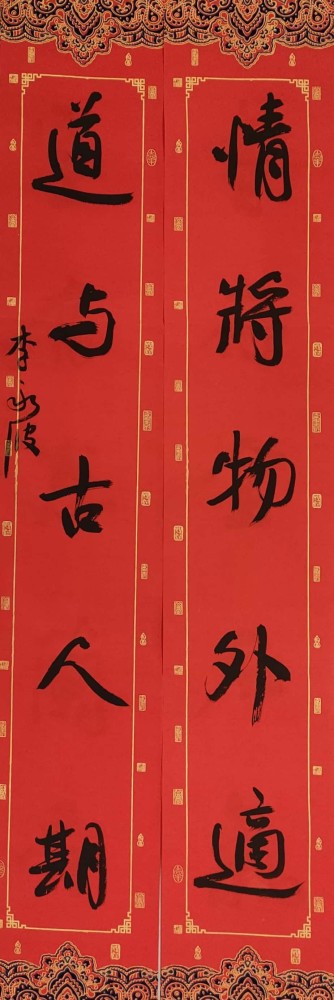 情將物外適
道与古人期
李永波